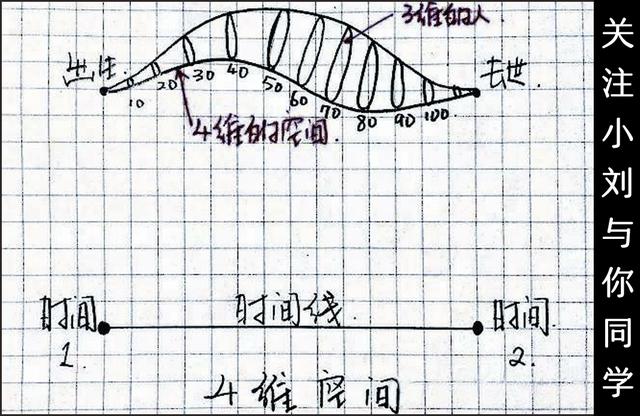 3维的人
出生
去世
10 20 30 40 50 60 70 80 90 100
4维的空间
时间1.
时间线
时间2.
4维空间
关注小刘与你同学